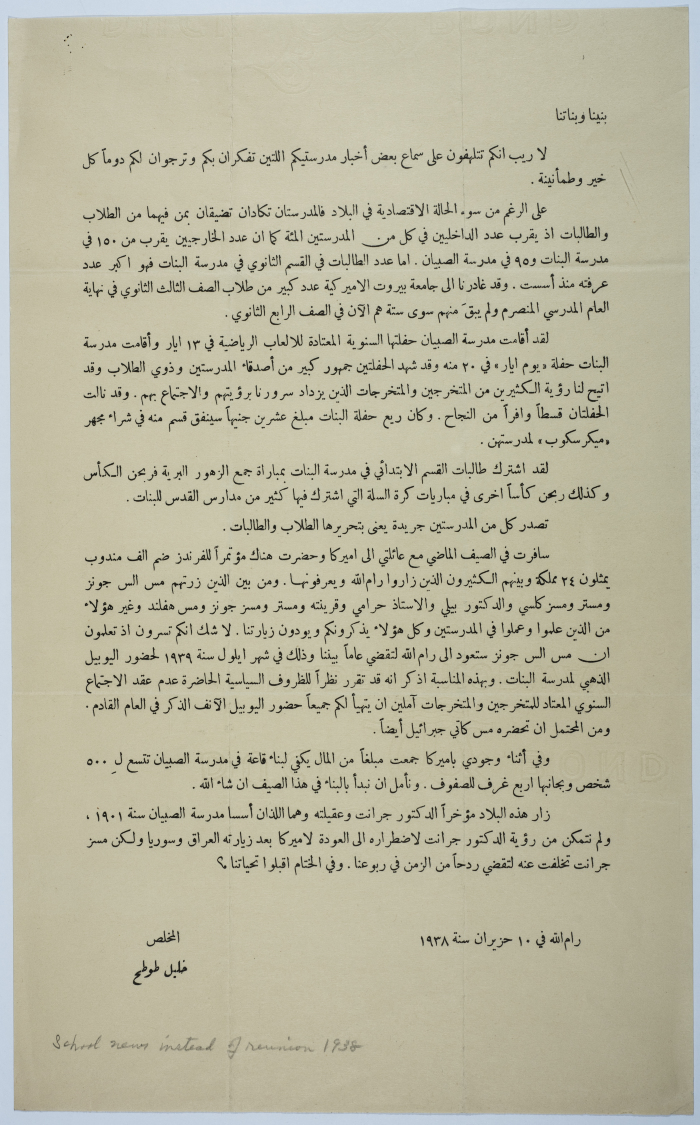 بنينا وبناتنا
لا ريب انكم تتلهفون على سماع بعض أخبار مدرستيكم اللتين تفكران بكم وترجوان لكم دوماً كل
خير وطمأنينة .
على الرغم من سوء الحالة الاقتصادية في البلاد فالمدرستان تكادان تضيقان بمن فيهما من الطلاب
والطالبات اذ يقرب عدد الداخليين في كل من المدرستين المئة كما ان عدد الخارجيين يقرب من ١٥٠ في
مدرسة البنات و٩٥ في مدرسة الصبيان . اما عدد الطالبات في القسم الثانوي في مدرسة البنات فهو اكبر عدد
عرفته منذ أسست . وقد غادرنا الى جامعة بيروت الاميركية عدد كبير من طلاب الصف الثالث الثانوي في نهاية
العام المدرسي المنصرم ولم يبقَ منهم سوى ستة هم الآن في الصف الرابع الثانوي .
لقد أقامت مدرسة الصبيان حفلتها السنوية المعتادة للالعاب الرياضية في ١٣ ايار وأقامت مدرسة
البنات حفلة «يوم ايار» في ٢٠ منه وقد شهد الحفلتين جمهور كبير من أصدقاء المدرستين وذوي الطلاب وقد
اتيح لنا رؤية الكثيرين من المتخرجين والمتخرجات الذين يزداد سرورنا برؤيتهم والاجتماع بهم . وقد نالت
الحفلتان قسطاً وافراً من النجاح . وكان ريع حفلة البنات مبلغ عشرين جنيهاً سينفق قسم منه في شراء مجهر
«ميكرسكوب» لمدرستهن .
لقد اشترك طالبات القسم الابتدائي في مدرسة البنات بمباراة جمع الزهور البرية فربحن الكأس
وكذلك ربحن كأساً اخرى في مباريات كرة السلة التي اشترك فيها كثير من مدارس القدس للبنات .
تصدر كل من المدرستين جريدة يعنى بتحريرها الطلاب والطالبات .
سافرت في الصيف الماضي مع عائلتي الى اميركا وحضرت هناك مؤتمراً للفرندز ضم الف مندوب
يمثلون ٢٤ مملكة وبينهم الكثيرون الذين زاروا رام الله ويعرفونها . ومن بين الذين زرتهم مس الس جونز
ومستر ومسز كلسي والدكتور بيلي والاستاذ حرامي وقرينته ومستر ومسز جونز ومس هفلند وغير هؤلاء
من الذين علموا وعملوا في المدرستين وكل هؤلاء يذكرونكم ويودون زيارتنا . لا شك انكم تسرون اذ تعلمون
ان مس الس جونز ستعود الى رام الله لتقضي عاماً بيننا وذلك في شهر ايلول سنة ١٩٣٩ لحضور اليوبيل
الذهبي لمدرسة البنات . وبهذه المناسبة اذكر انه قد تقرر نظراً للظروف السياسية الحاضرة عدم عقد الاجتماع
السنوي المعتاد للمتخرجين والمتخرجات آملين ان يتهيأ لكم جميعاً حضور اليوبيل الآنف الذكر في العام القادم .
ومن المحتمل ان تحضره مس كاتي جبرائيل أيضاً .
وفي أثناء وجودي باميركا جمعت مبلغاً من المال يكفي لبناء قاعة في مدرسة الصبيان تتسع لـ ٥٠٠
شخص وبجانبها اربع غرف للصفوف . ونأمل ان نبدأ بالبناء في هذا الصيف ان شاء الله .
زار هذه البلاد مؤخراً الدكتور جرانت وعقيلته وهما اللذان أسسا مدرسة الصبيان سنة ١٩٠١ ،
ولم نتمكن من رؤية الدكتور جرانت لاضطراره الى العودة لاميركا بعد زيارته العراق وسوريا ولكن مسز
جرانت تخلفت عنه لتقضي ردحاً من الزمن في ربوعنا . وفي الختام اقبلوا تحياتنا ؟
رام الله في ١٠ حزيران سنة ١٩٣٨
المخلص
خليل طوطح
School news instead of reunion 1938